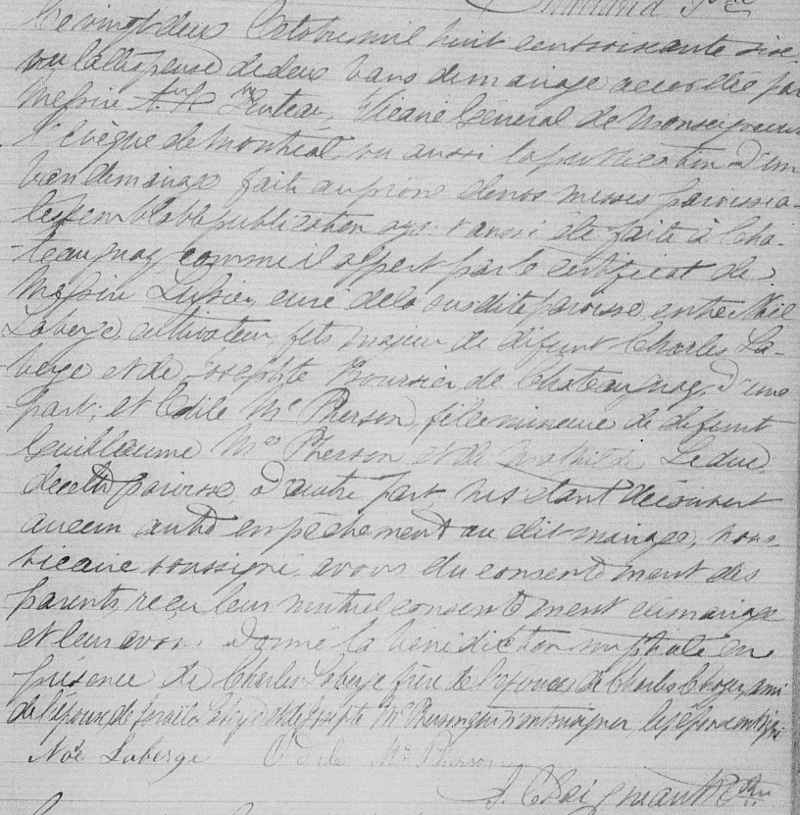 Le vingt deux Octobre mil huit cent soixante six
vu la dispense de deux bans de mariage accordée par
Messire A. F. Truteau, Vicaire Général de Monseigneur
l'Evêque de Montréal, vu aussi la publication d'un
ban de mariage faite au prône de nos messes paroissia-
les semblable publication ayant aussi été faite à Cha-
teauguay comme il appert par le certificat de
Messire Lussier, curé de la susdite paroisse, entre Noé
Laberge, cultivateur, fils majeur de défunt Charles La-
berge et de Josephte Boursier de Chateauguay, d'une
part; et Odile Mc Pherson, fille mineure de défunt
Guillaume Mc Pherson et de Mathilde Leduc
de cette paroisse d'autre part, ne s'étant découvert
aucun autre empêchement au dit mariage, nous
vicaire soussigné avons du consentement des
parents, reçu leur mutuel consentement en mariage
et leur avons donné la bénédiction nuptiale en
présence de Charles Laberge frère de l'époux, de Charles ami
de l'époux, de et de Joseph Mc Pherson qui n'ont su signer les époux ont signé
Noé Laberge Odile Mc Pherson
Ptre